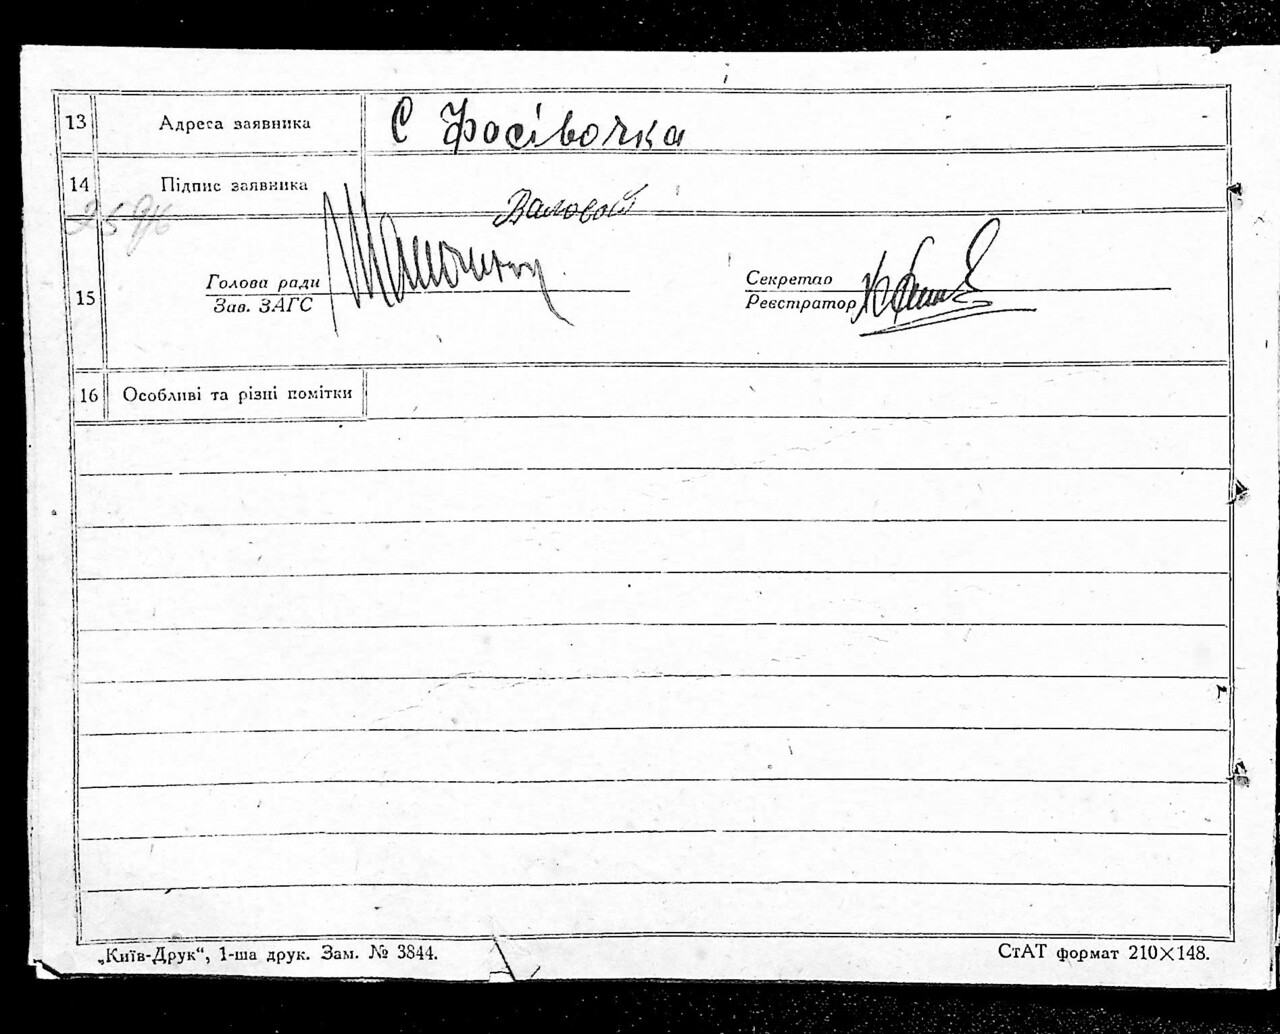 13 Адреса заявника С Фосівочка
14 Підпис заявника Валовой
Голова ради
Зав. ЗАГС
15
Секретар
Реєстратор
16 Особливі та різні помітки
„Київ-Друк“, 1-ша друк. Зам. № 3844.
СтАТ формат 210×148.